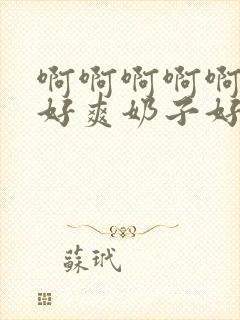 啊啊啊啊啊
好爽奶子好
蘇玳